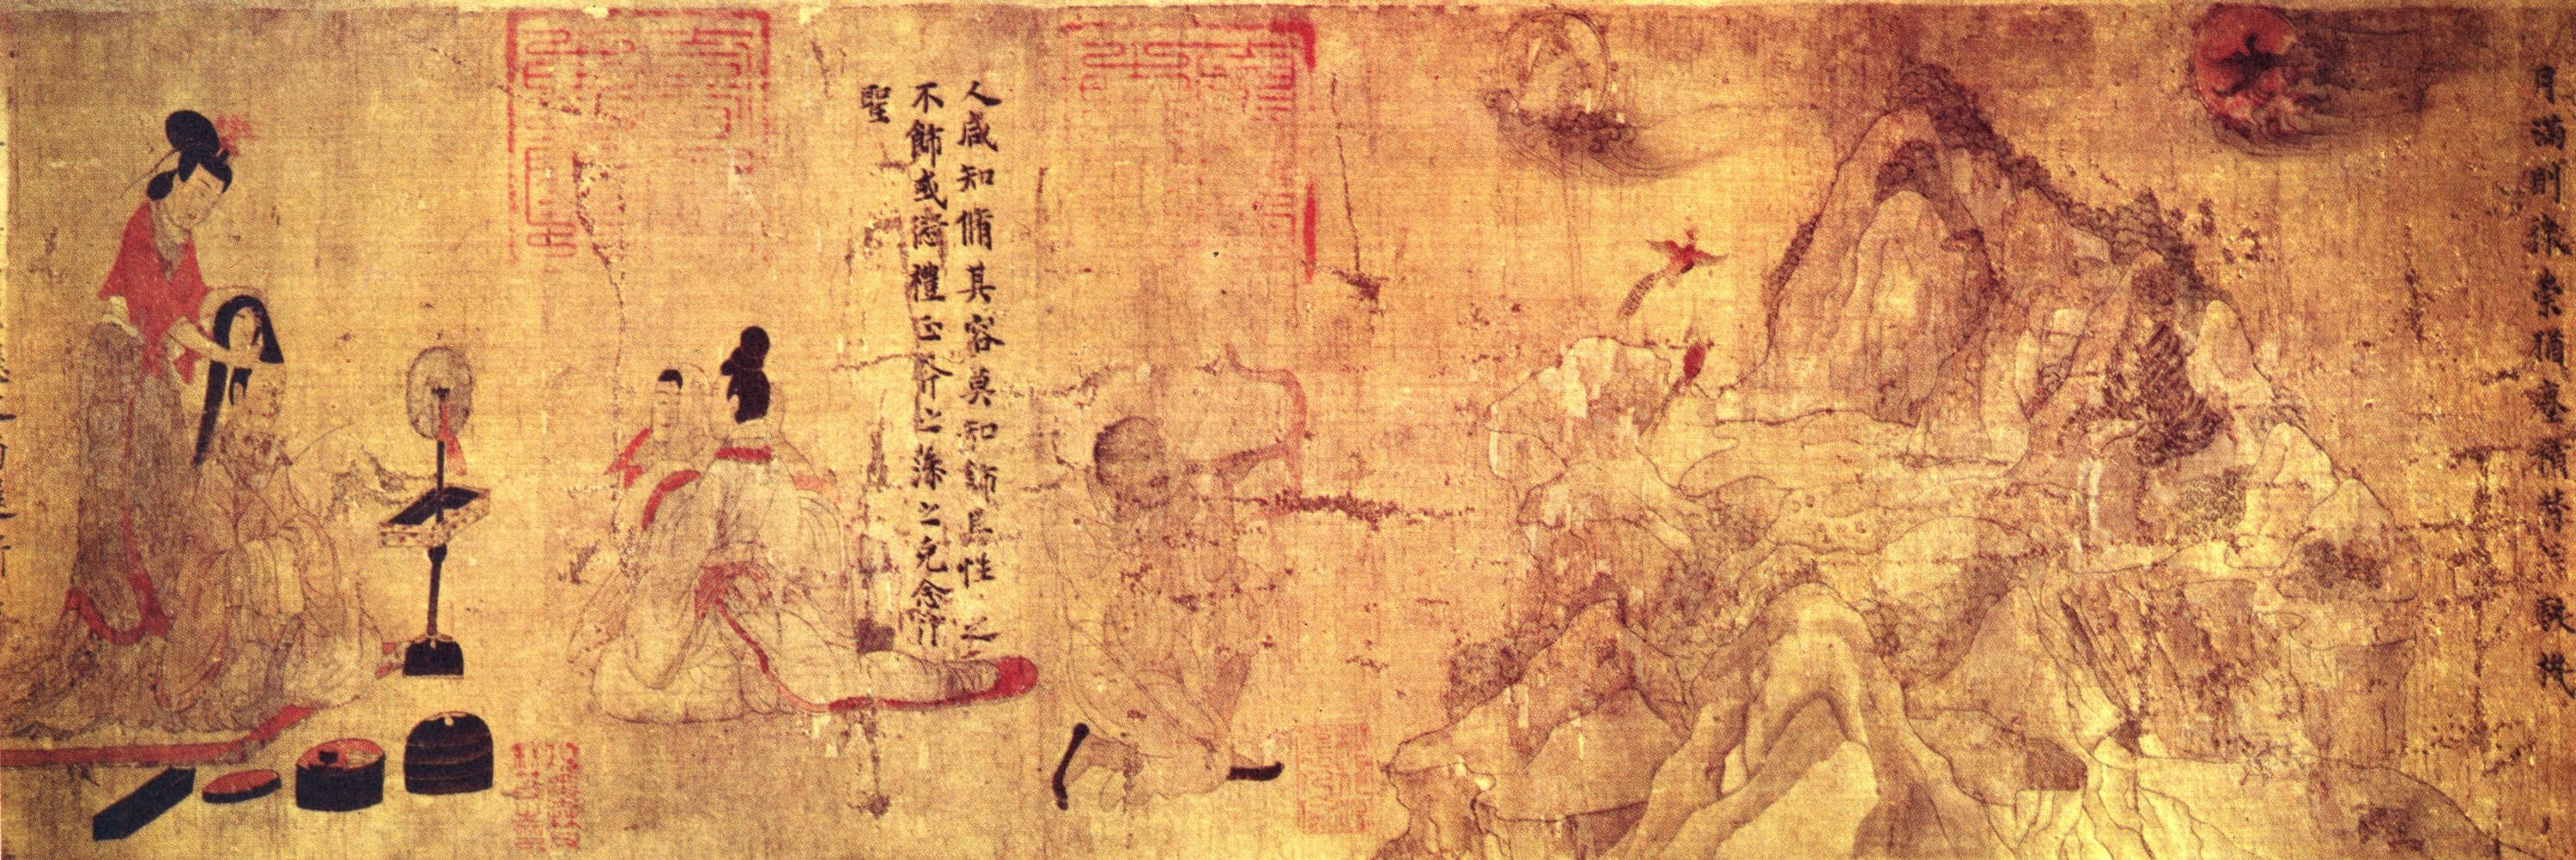 月滿則微崇猶塵積替若駭機
人咸知脩其容莫知飾其性之
不飾或愆禮正斧之藻之克念作
聖